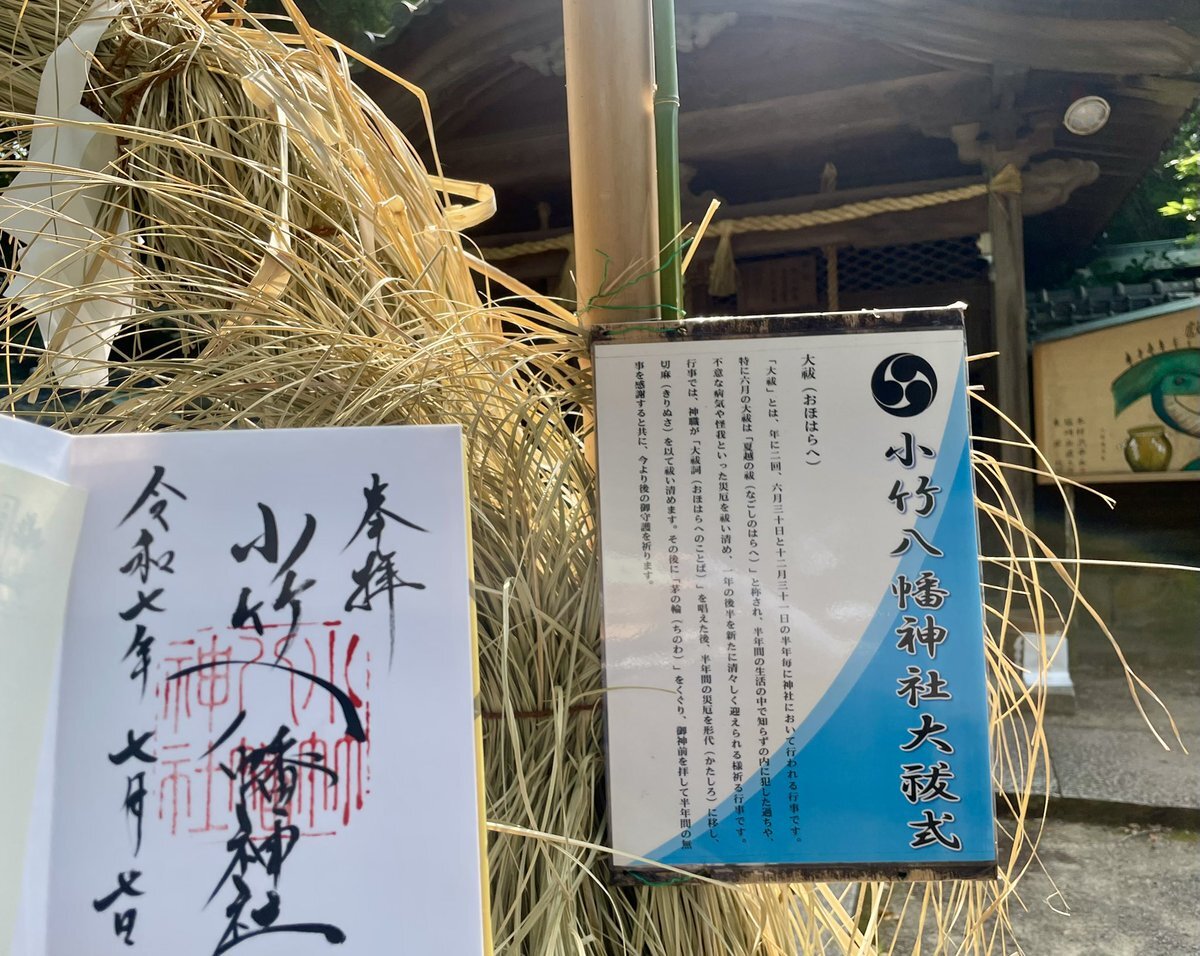 小竹八幡神社大祓式
大祓（おほはらへ）
「大祓」とは、年に二回、六月三十日と十二月三十一日の半年毎に神社において行われる行事です。
特に六月の大祓は「夏越の祓（なごしのはらへ）」と称され、半年間の生活の中で知らずの内に犯した過ちや、
不意な病気や怪我といった災厄を祓い清め、一年の後半を新たに清々しく迎えられる様祈る行事です。
行事では、神職が「大祓詞（おほはらへのことば）」を唱えた後、半年間の災厄を形代（かたしろ）に移し、
切麻（きりぬさ）を以て祓い清めます。その後に「茅の輪（ちのわ）」をくぐり、御神前を拝して半年間の無
事を感謝すると共に、今より後の御守護を祈ります。
奉拝
小竹八幡神社
小竹
八幡
神社
令和七年七月七日